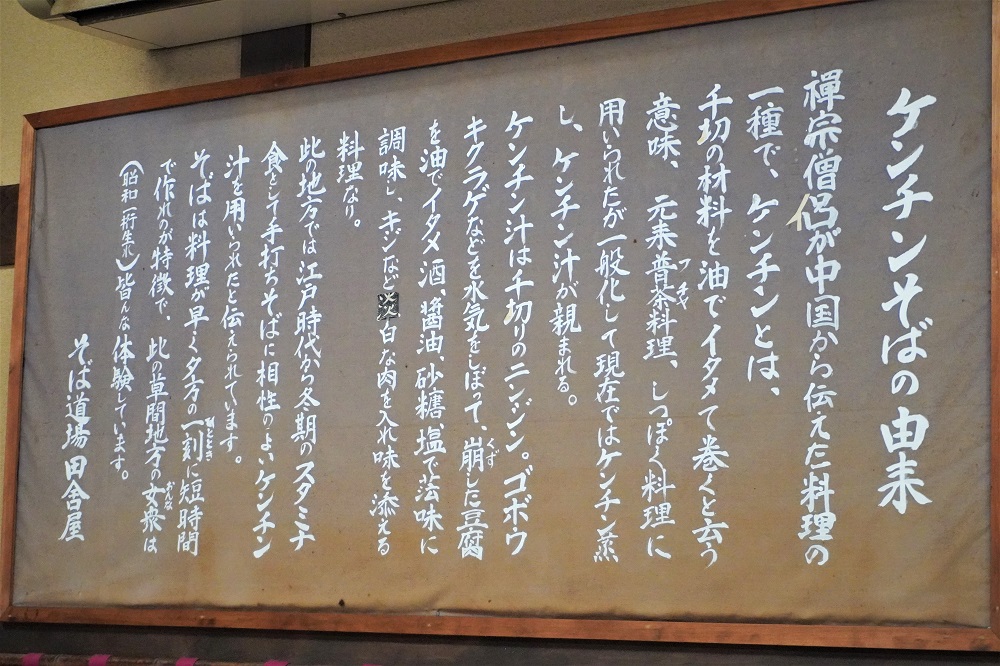 ケンチンそばの由来
禅宗僧侶が中国から伝えた料理の
一種で、ケンチンとは、
千切の材料を油でイタメて巻くと云う
意味、元来普茶料理、しっぽく料理に
フチャ
用いられたが一般化して現在ではケンチン蒸
し、ケンチン汁が親まれる。
ケンチン汁は千切りのニンジン。ゴボウ
キクラゲなどを水気をしぼって、崩した豆腐
くず
を油でイタメ酒、醤油、砂糖、塩で法味に
調味し、キジなど淡白な肉を入れ味を添える
料理なり。
此の地方では江戸時代から冬期のスタミナ
食として手打ちそばに相性のよいケンチン
汁を用いられたと伝えられています。
そばは料理が早く夕方の一刻に短時間
で作れのが特徴で、此の草間地方の女衆は
おんな
(昭和一桁生れ)皆んな体験しています。
そば道場田舎屋